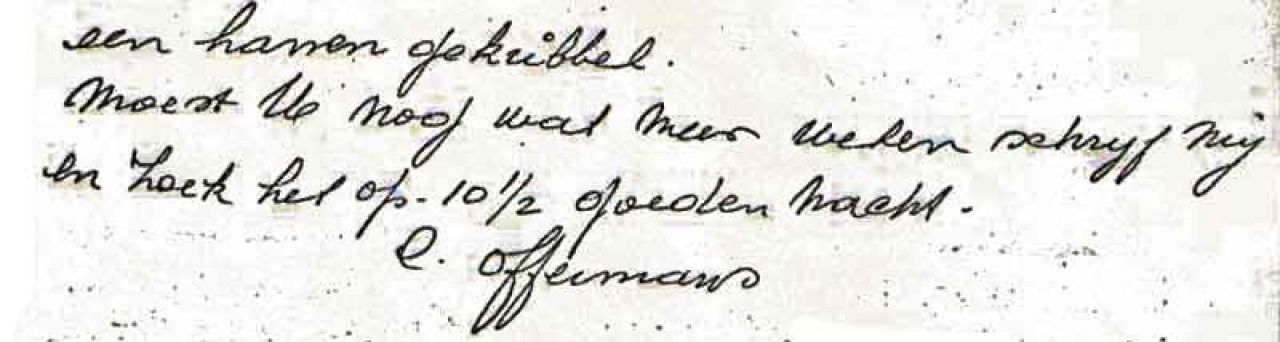 een hanen gekribbel.
Moest U nog wat meer weten schryf my
en zoek het op. 10 1/2 goeden nacht.
E. Offermans